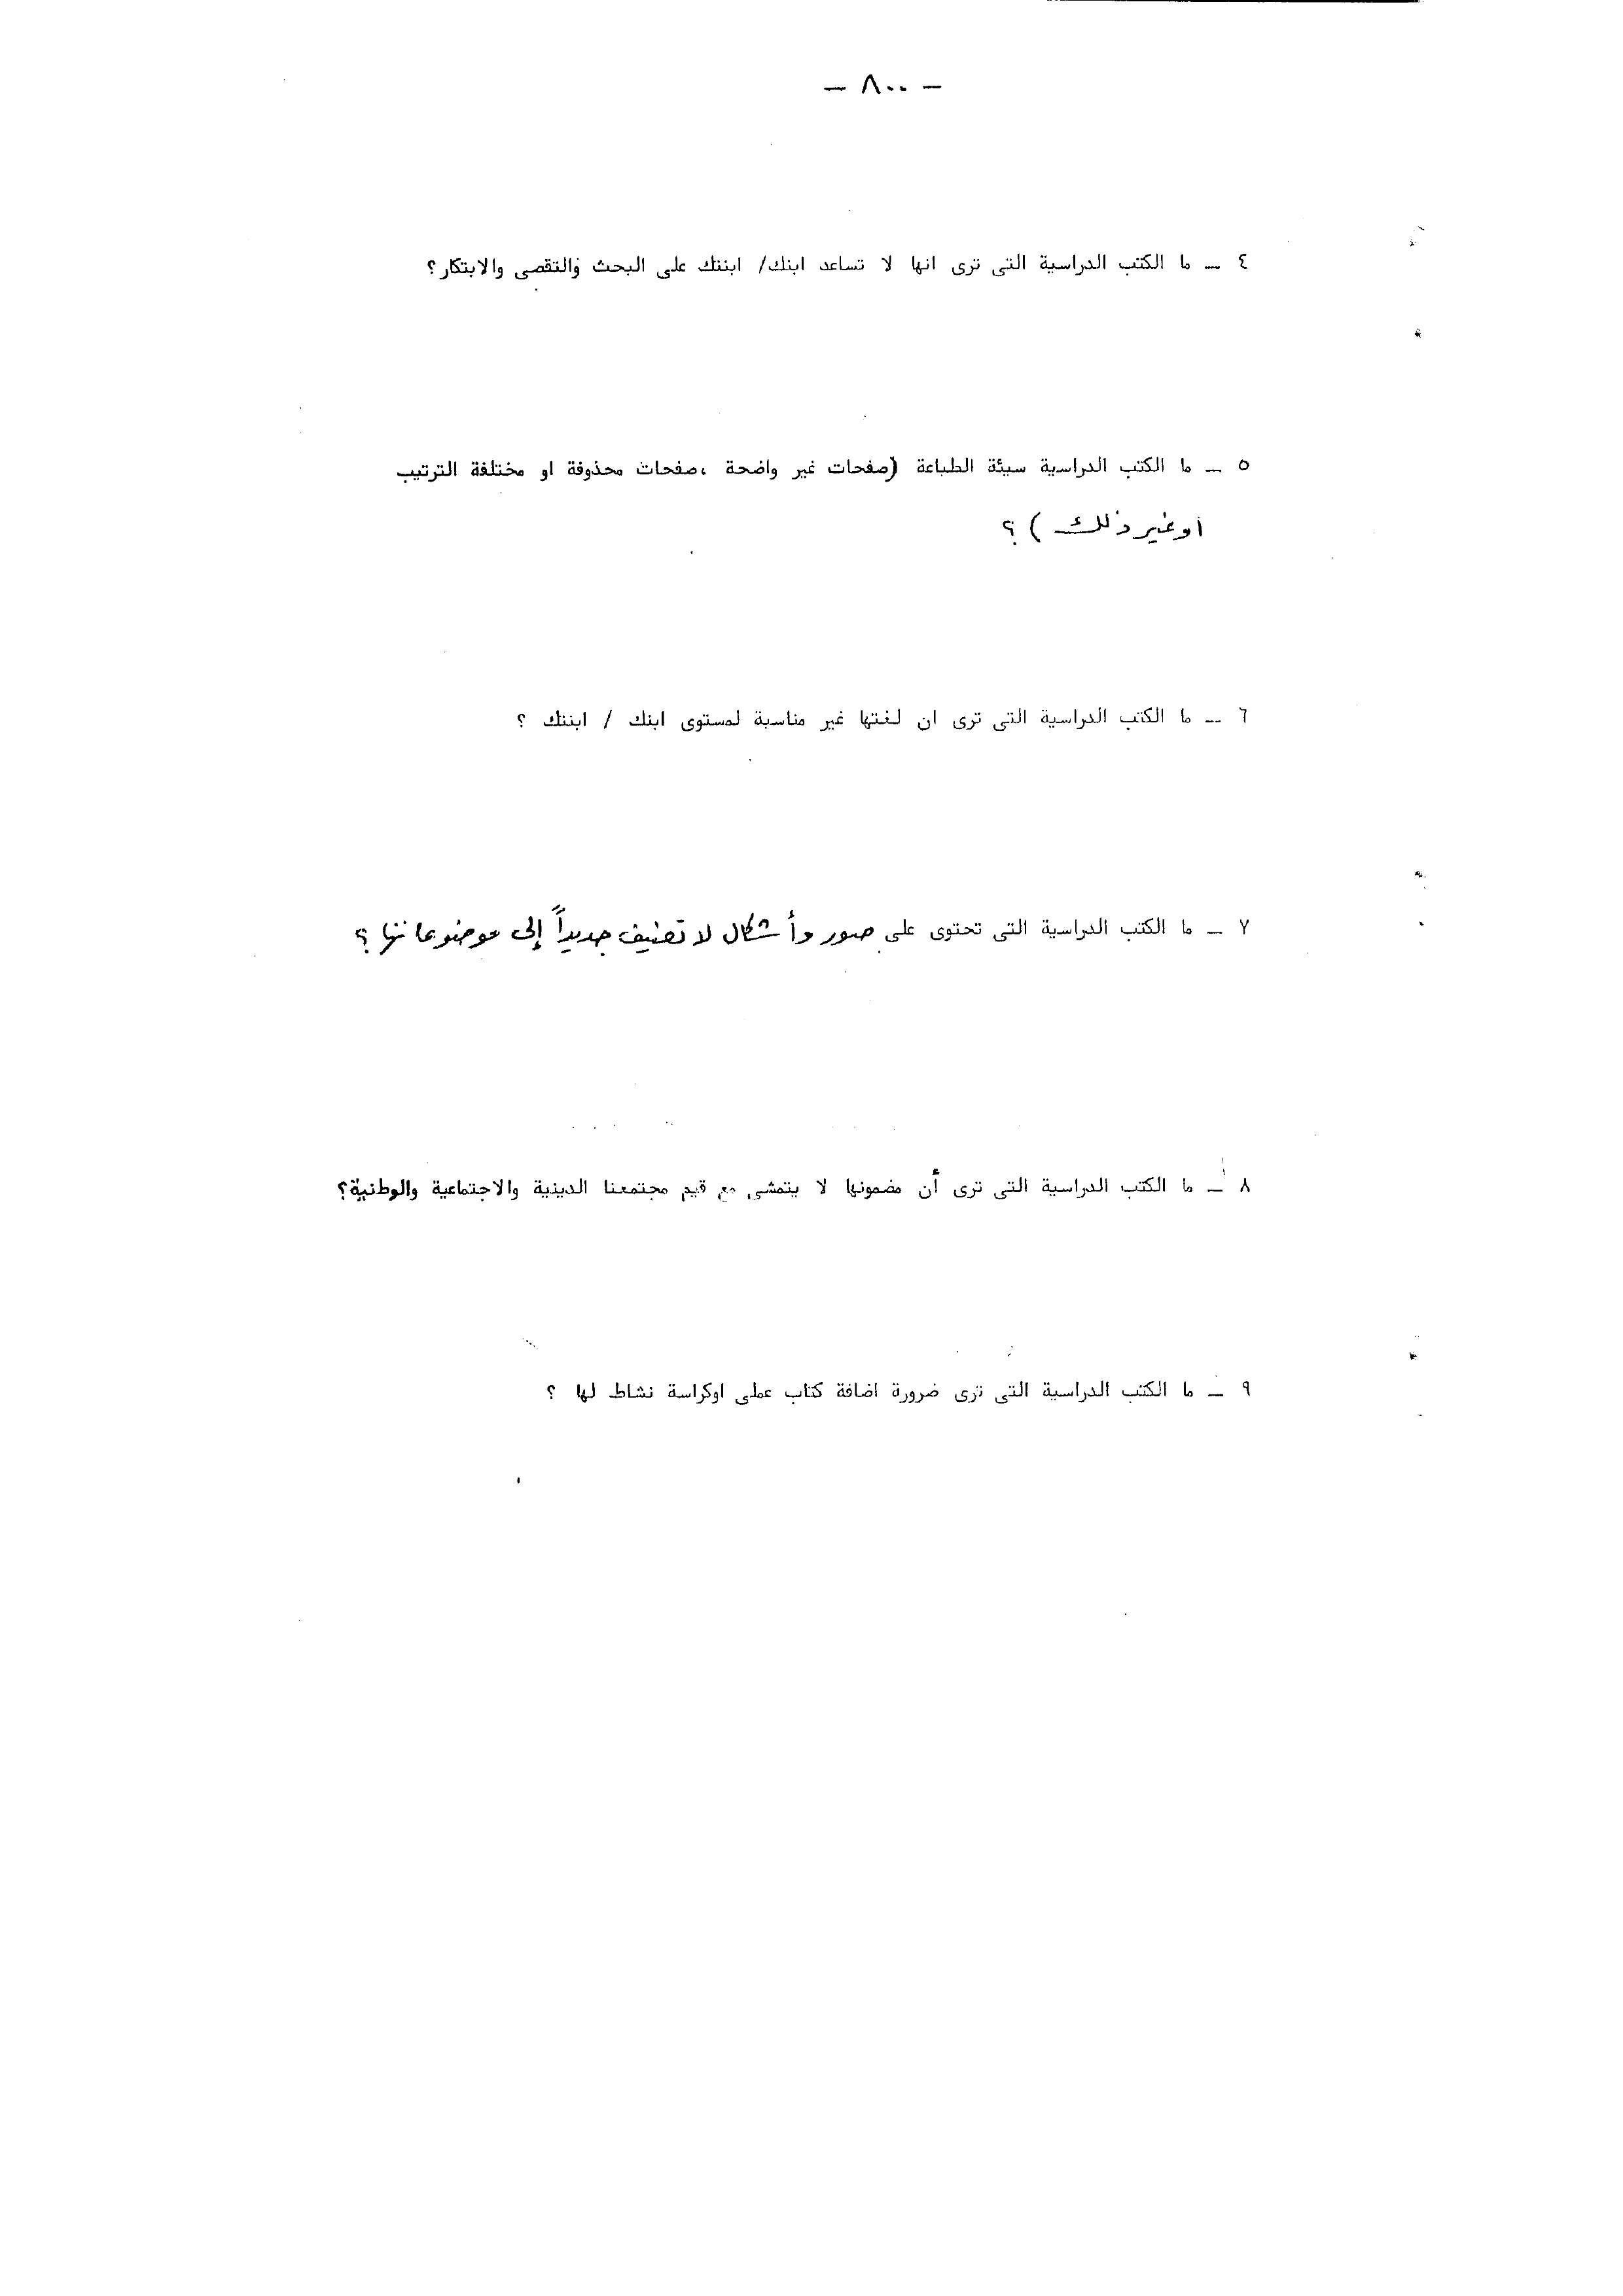 - ٨٠٠ -
٤ - ما الكتب الدراسية التى ترى انها لا تساعد ابنك/ ابنتك على البحث والتقصى والابتكار؟
٥ - ما الكتب الدراسية سيئة الطباعة (صفحات غير واضحة ،صفحات محذوفة او مختلفة الترتيب
أو غير ذلك )؟
٦ - ما الكتب الدراسية التى ترى ان لغتها غير مناسبة لمستوى ابنك / ابنتك ؟
٧ - ما الكتب الدراسية التى تحتوى على صور وأشكال لا تضيف جديداً إلى موضوعاتها ؟
٨ - ما الكتب الدراسية التى ترى أن مضمونها لا يتمشى مع قيم مجتمعنا الدينية والاجتماعية والوطنية؟
٩ - ما الكتب الدراسية التى ترى ضرورة اضافة كتاب عملى اوكراسة نشاط لها ؟